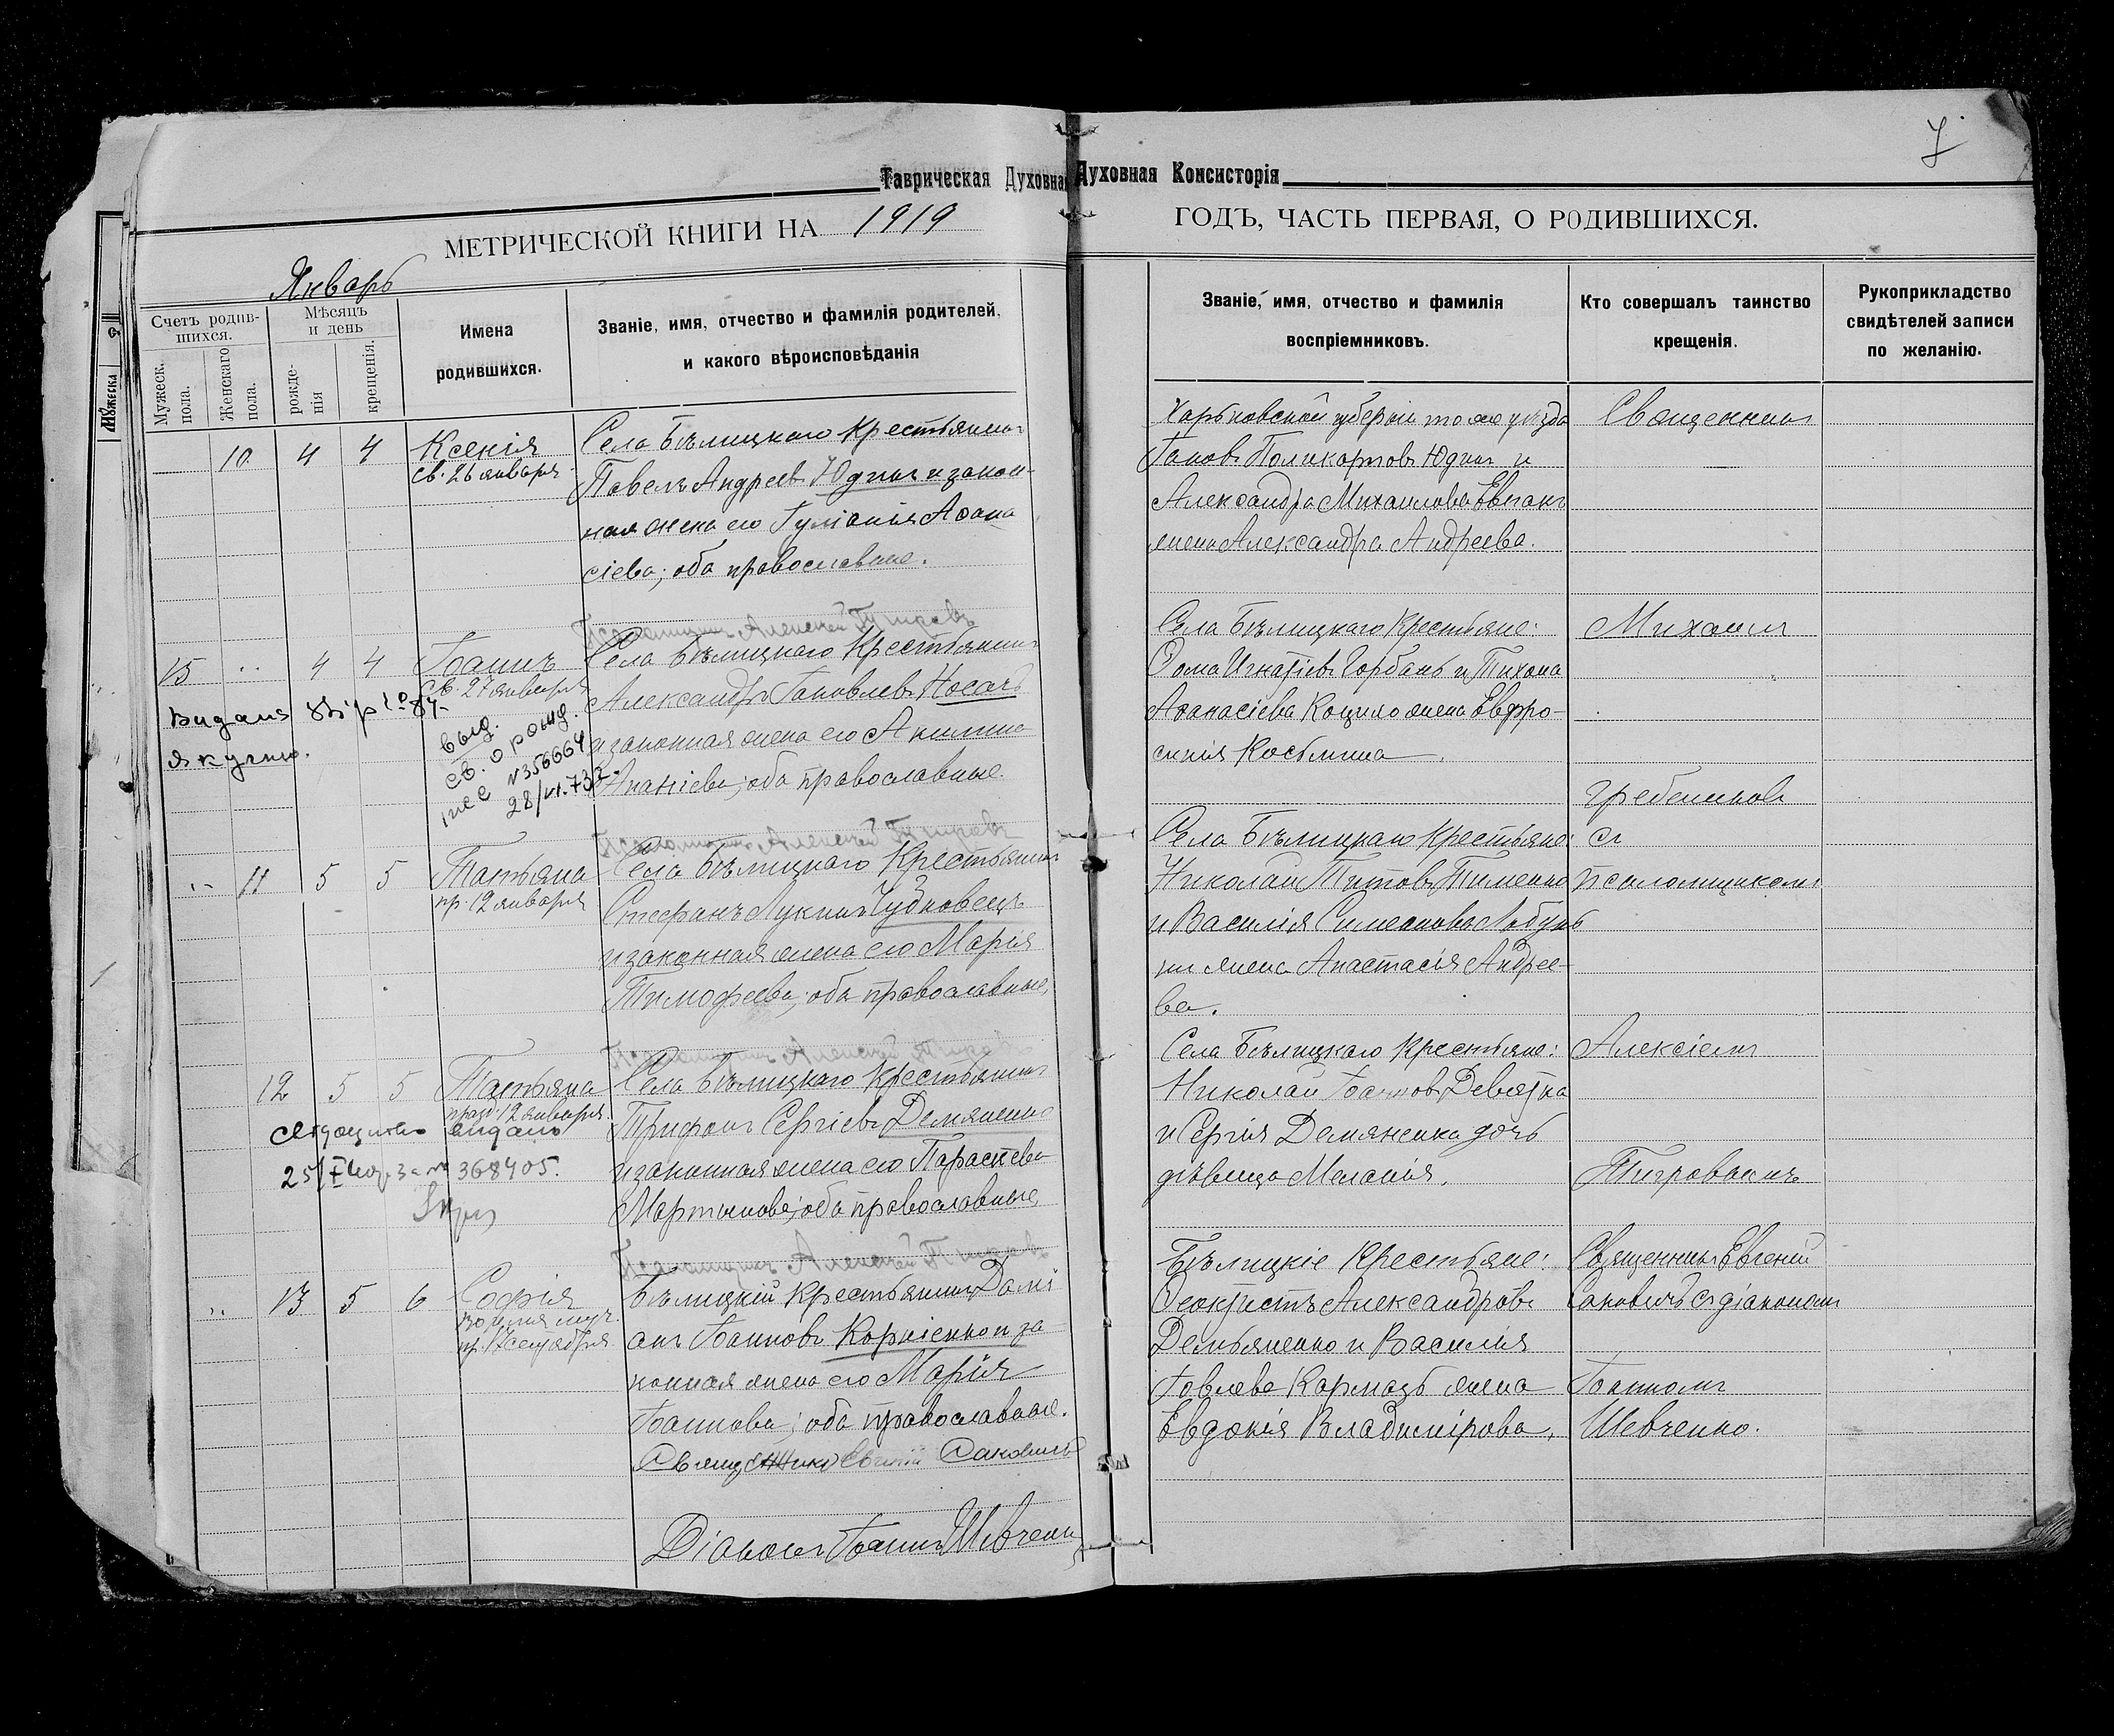 7
Таврическая Духовная
Духовная Консисторія
МЕТРИЧЕСКОЙ КНИГИ НА 1919
ГОДЪ, ЧАСТЬ ПЕРВАЯ, О РОДИВШИХСЯ.
Январь
Счетъ родив-
шихся.
Мужеск.
пола.
Женскаго
пола.
Мѣсяцъ
и день
рожде-
нія
крещенія.
Имена
родившихся.
Званіе, имя, отчество и фамилія родителей,
и какого вѣроисповѣданія
Званіе, имя, отчество и фамилія
воспріемниковъ.
Кто совершалъ таинство
крещенія.
Рукоприкладство
свидѣтелей записи
по желанію.
10 4 4 Ксенія
св. 26 января
Села Бѣлицкаго крестьянинъ
Павелъ Андреевъ Юдинъ и закон-
ная жена его Гуліанія Аѳана
сіева; оба православные.
Харьковской губерніи того же уѣзда
Іаковъ Поликарповъ Юдинъ и
Александра Михаилова
жена Александра Андреева.
Священникъ
Псаломщикъ Алексѣй
15 4 4 Іоаннъ
св. 27 января
Села Бѣлицкаго Крестьянинъ
Александръ Іаковлевъ Носачъ
и законная жена его Акилина
Ананіева; оба православные.
выд.
св. о рожд.
N356664
28/VI.73г.
Села Бѣлицкаго Крестьяне:
Ѳома Игнатіевъ Горбань и Тихона
Аѳанасіева Коцило жена Евфро-
синія Косьмина.
Михаилъ
Гребениковъ
Псаломщикъ Алексѣй
11 5 5 Татьяна
пр. 12 января
Села Бѣлицкаго Крестьянинъ
Стефанъ Лукинъ Чудновецъ
и законная жена его Марія
Тимофеева; оба православные.
Села Бѣлицкаго Крестьяне:
Николай Титовъ Тименко
и Василія Симеонова
жена Анастасія Андрее-
ва.
съ
псаломщикомъ
Псаломщикъ Алексѣй
12 5 5 Татьяна
празд. 12 января
Села Бѣлицкаго Крестьянинъ
Трифонъ Сергіевъ Демяненко
и законная жена его Параскева
Мартинова; оба православные
видано
368405.
Села Бѣлицкаго Крестьяне:
Николай Іоанновъ Девятка
и Сергія Демяненка дочь
дѣвица Меланія.
Алексіемъ
Псаломщикъ Алексѣй
13 5 6 Софія
пр. 17 сентября
Бѣлицкій крестьянинъ Дамі
анъ Іоанновъ Корніенко и за-
конная жена его Марія
Іоаннова; оба православные.
Священникъ Евгеній Саковичъ
Діаконъ Іоаннъ Шевченко
Бѣлицкіе Крестьяне:
Ѳеоктистъ Александровъ
Демьяненко и Василія
Іовлева Кармазь жена
Евдокія Владимірова.
Священникъ Евгеній
Саковичъ съ діакономъ
Іоанномъ
Шевченко.